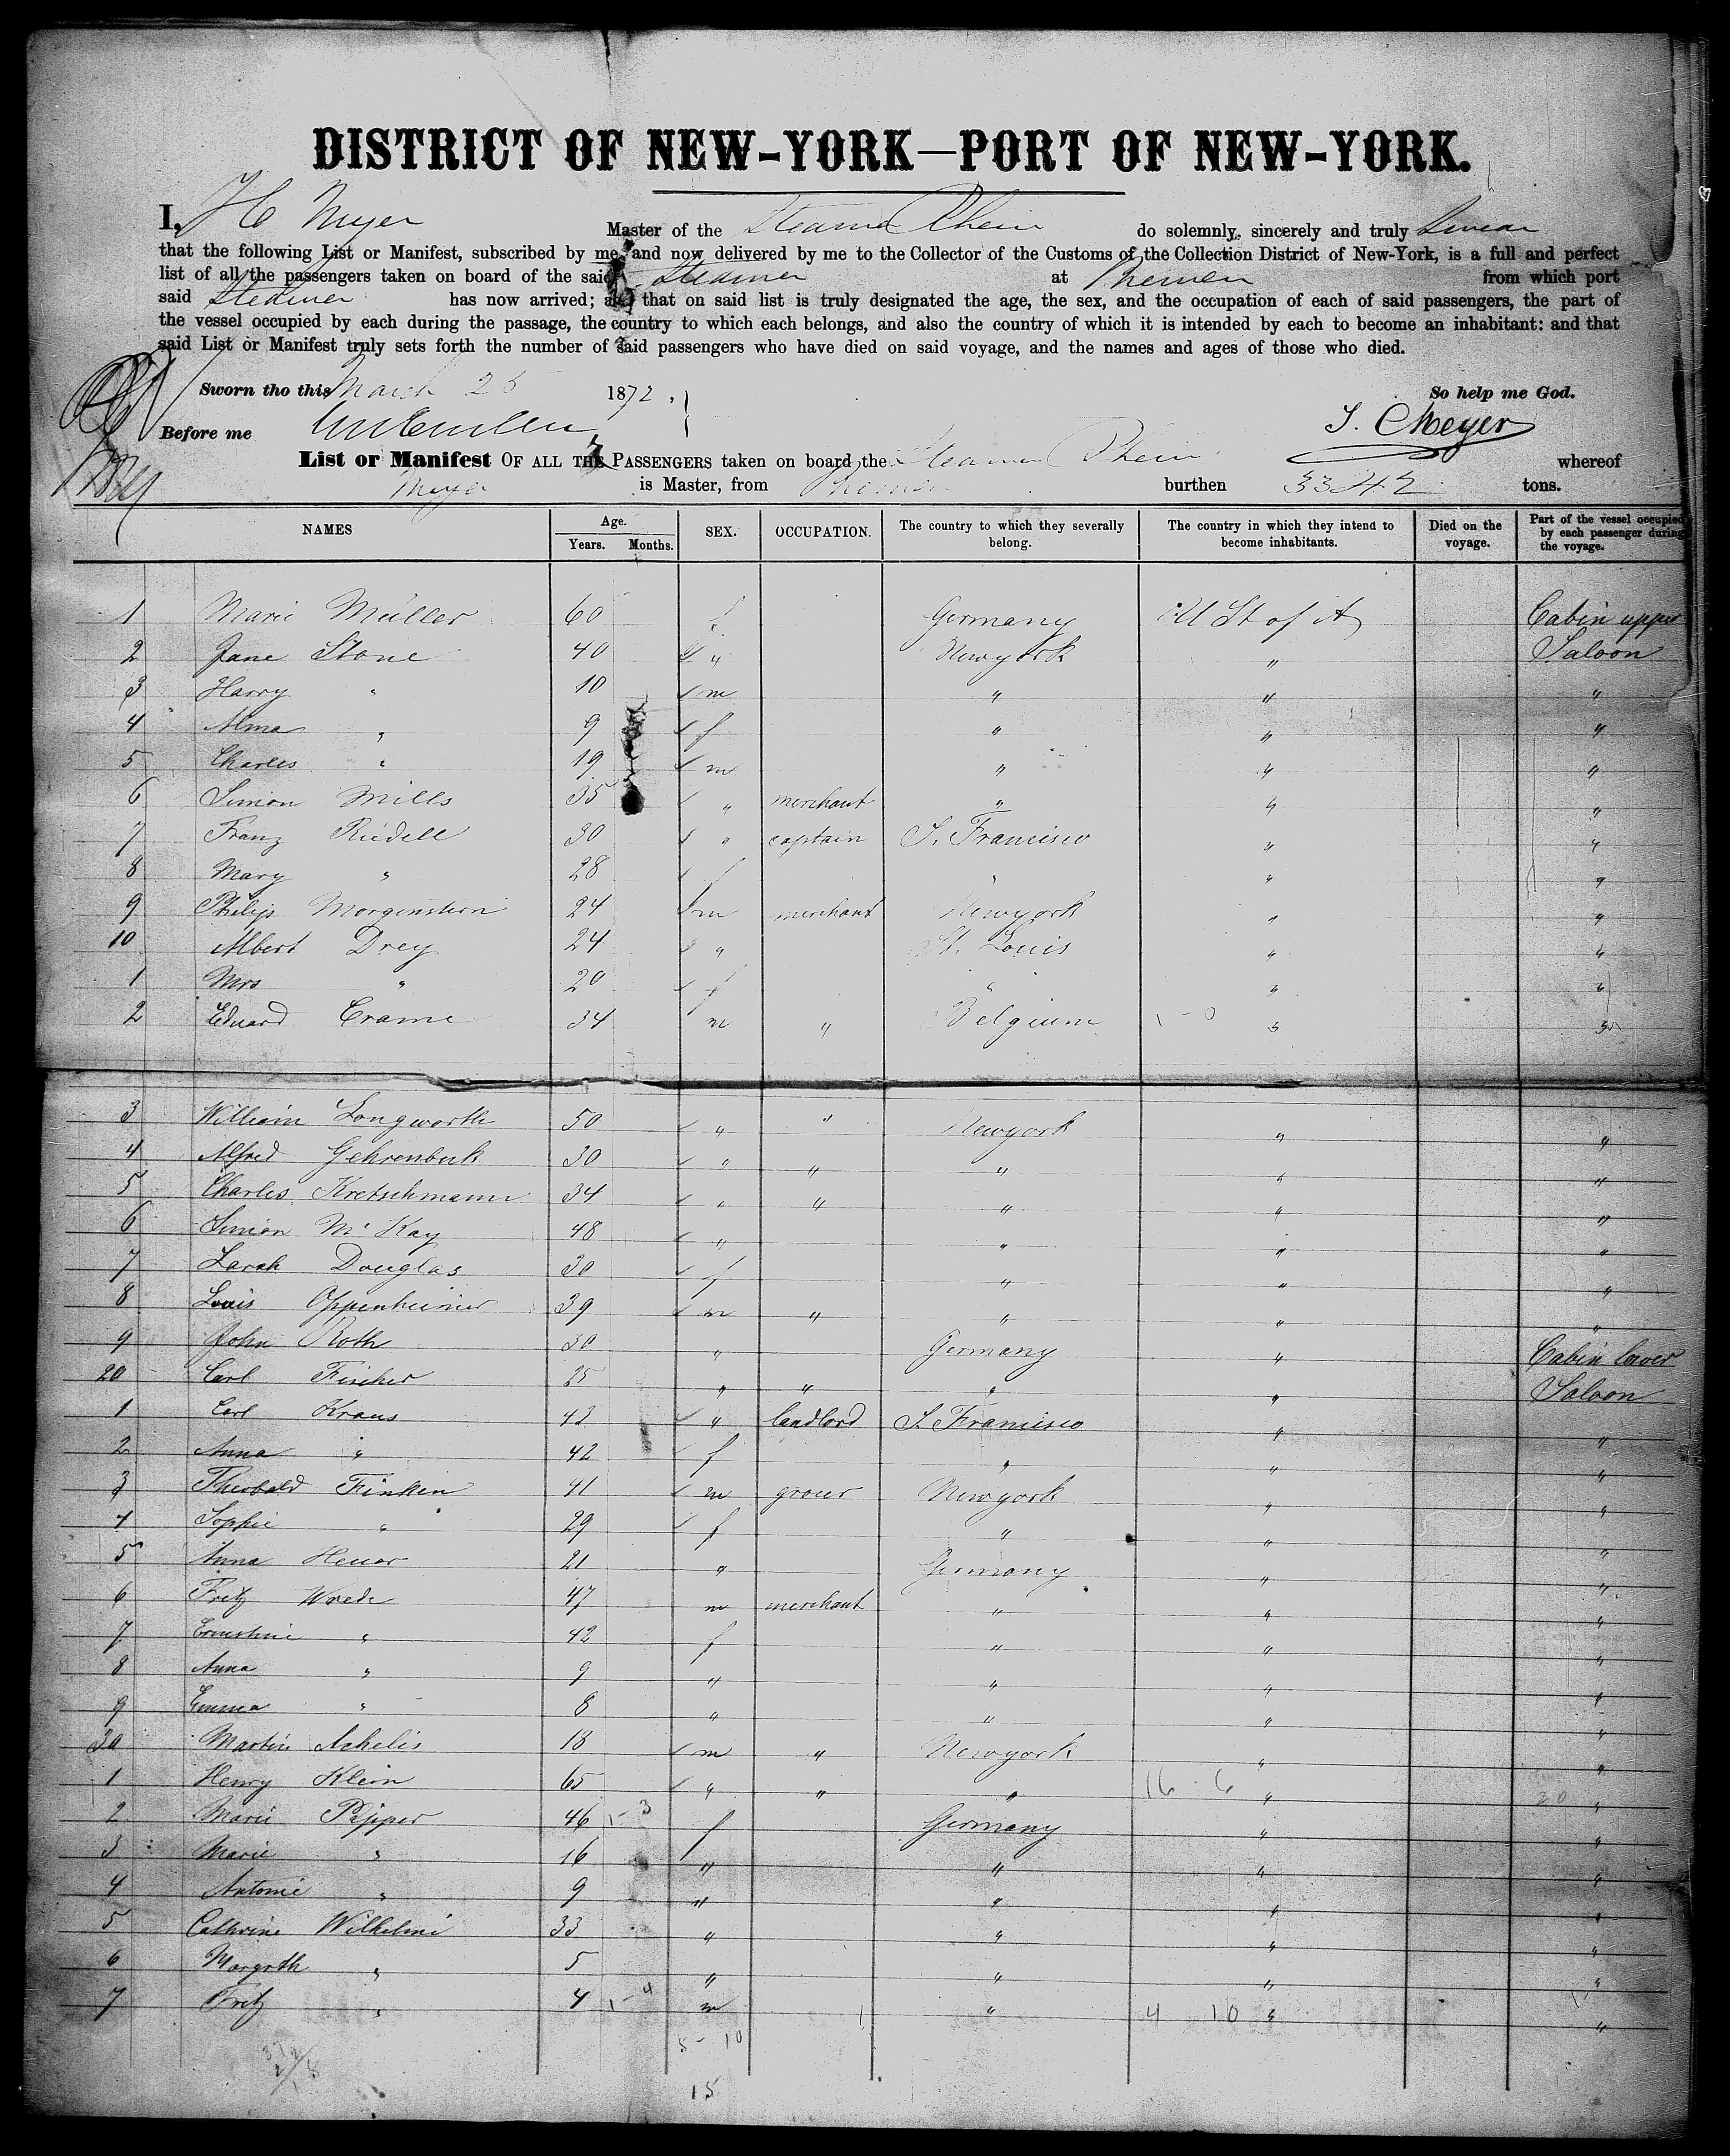 DISTRICT OF NEW-YORK—PORT OF NEW-YORK.
I, H C Meyer Master of the Steamer Rhein do solemnly, sincerely and truly Swear
that the following List or Manifest, subscribed by me, and now delivered by me to the Collector of the Customs of the Collection District of New-York, is a full and perfect
list of all the passengers taken on board of the said Steamer at Bremen from which port
said Steamer has now arrived; and that on said list is truly designated the age, the sex, and the occupation of each of said passengers, the part of
the vessel occupied by each during the passage, the country to which each belongs, and also the country of which it is intended by each to become an inhabitant: and that
said List or Manifest truly sets forth the number of said passengers who have died on said voyage, and the names and ages of those who died.
Sworn tho this March 25 1872, So help me God.
Before me Meyer
List or Manifest OF ALL THE PASSENGERS taken on board the Steamer Rhein whereof
Meyer is Master, from Bremen burthen 3342 tons.
NAMES Age. Years. Months. SEX. OCCUPATION. The country to which they severally belong. The country in which they intend to become inhabitants. Died on the voyage. Part of the vessel occupied by each passenger during the voyage.
1 Marie Müller 60 f Germany U St of A Cabin upper
2 Jane Stone 40 " Newyork " Saloon
3 Harry " 10 m " " "
4 Alma " 9 f " " "
5 Charles " 19 m " " "
6 Simon Mills 35 " merchant " " "
7 Franz Riedell 30 " captain S. Francisco " "
8 Mary " 28 f " " "
9 Philip Morgenstern 24 m merchant Newyork " "
10 Albert Drey 24 " St. Louis " "
1 Mrs " 20 f " " "
2 Eduard Crame 34 m " Belgium 1-0 " "
3 William Longworth 50 " " Newyork " "
4 Alfred 30 " " " " "
5 Charles Kretschmann 34 " " " " "
6 Simon Mc Kay 48 " " " "
7 Sarah Douglas 30 f " " "
8 Louis Oppenheimer 39 m " " " "
9 John Roth 30 " Germany " Cabin lower
20 Carl Fischer 25 " " " " Saloon
1 Carl Kraus 43 " landlord S. Francisco " "
2 Anna " 42 f " " "
3 Theobald Finken 41 m grocer Newyork " "
4 Sophie " 29 f " " "
5 Anna Heuer 21 " Germany " "
6 Fritz Wrede 47 m merchant " " "
7 Ernestine " 42 f " " "
8 Anna " 9 " " " "
9 Emma " 8 " " " "
30 Martin Achelis 18 m " Newyork " "
1 Henry Klein 65 " " " 16-6 " 20 "
2 Marie Pepper 46 1-3 f Germany " "
3 Marie " 16 " " " "
4 Antonie " 9 " " " "
5 Cathrine Wilhelmi 33 " " " "
6 Margreth " 5 " " " "
7 Fritz " 4 1-4 m " 4 10 " "
5-10
15